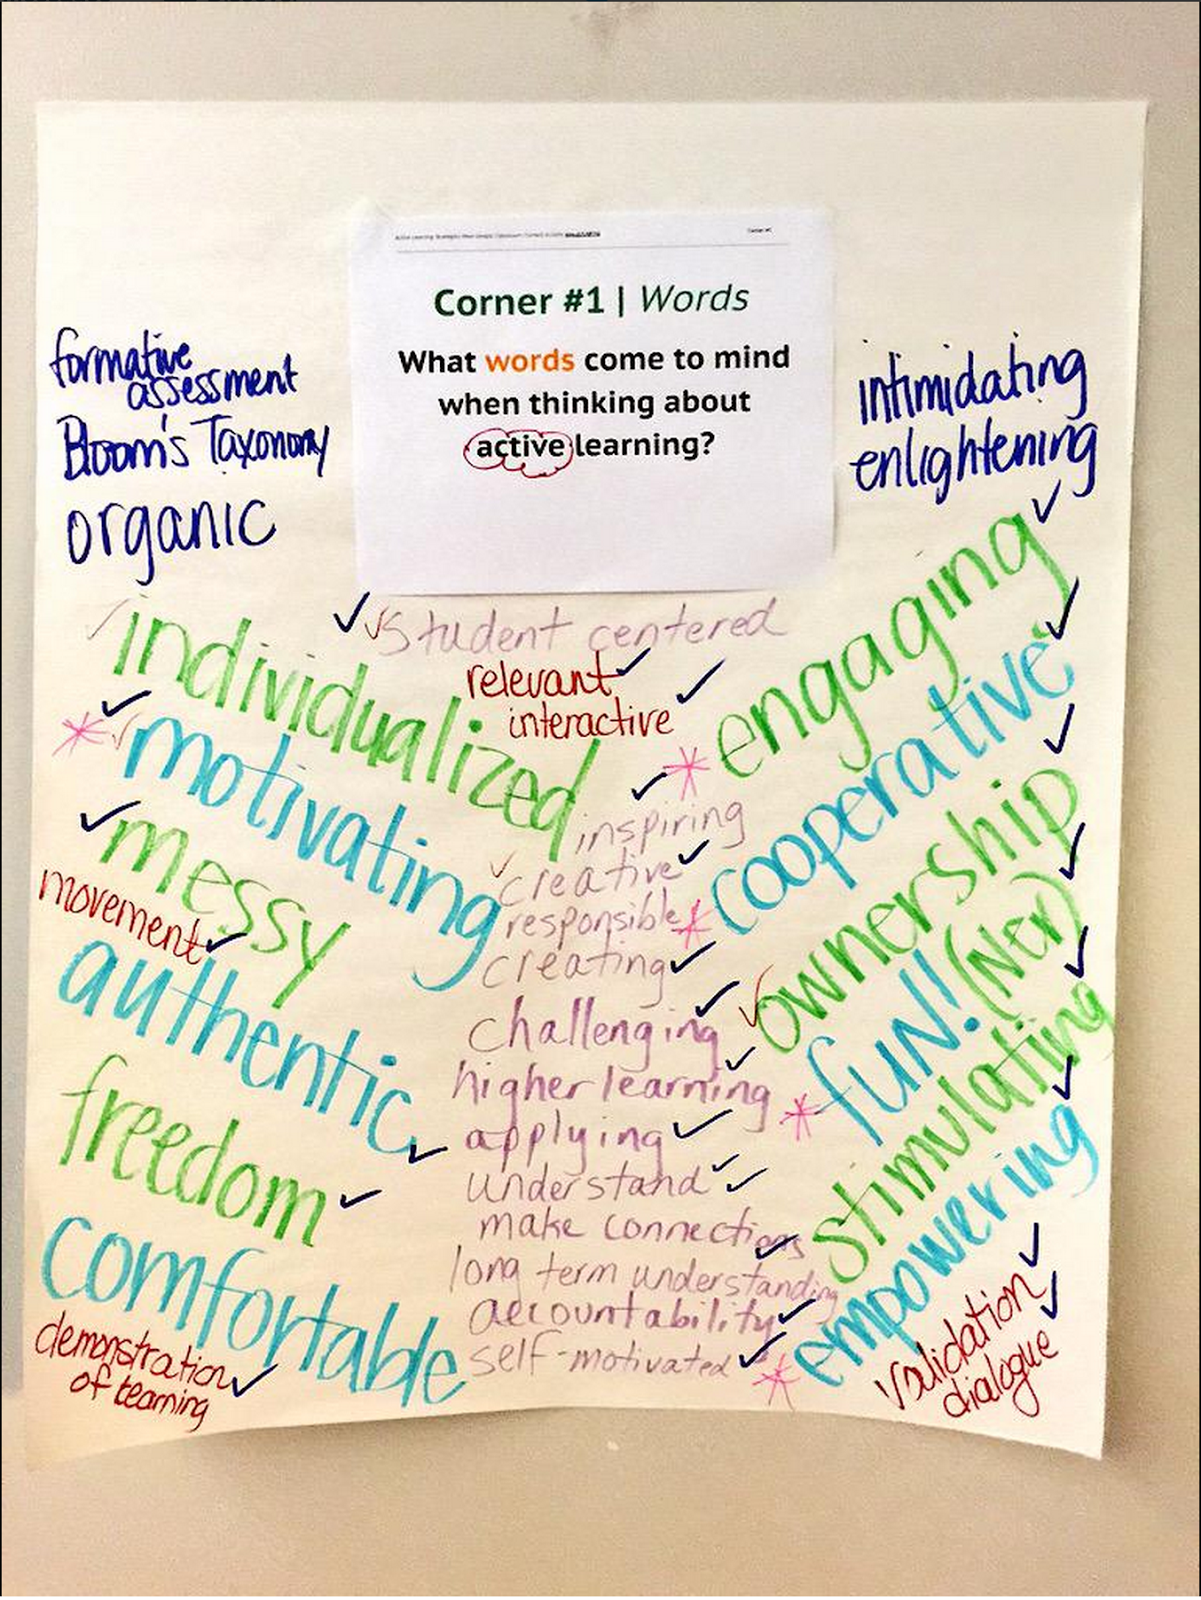 Corner #1 | Words
What words come to mind
when thinking about
active learning?
formative
assessment
Bloom's Taxonomy
organic
intimidating
enlightening
individualized
motivating
messy
movement
authentic
freedom
comfortable
demonstration
of learning
student centered
relevant
interactive
inspiring
creative
responsible
creating
challenging
higher learning
applying
understand
make connections
long term understanding
accountability
self-motivated
engaging
cooperative
ownership
fun!! (NCr)
stimulating
empowering
validation
dialogue